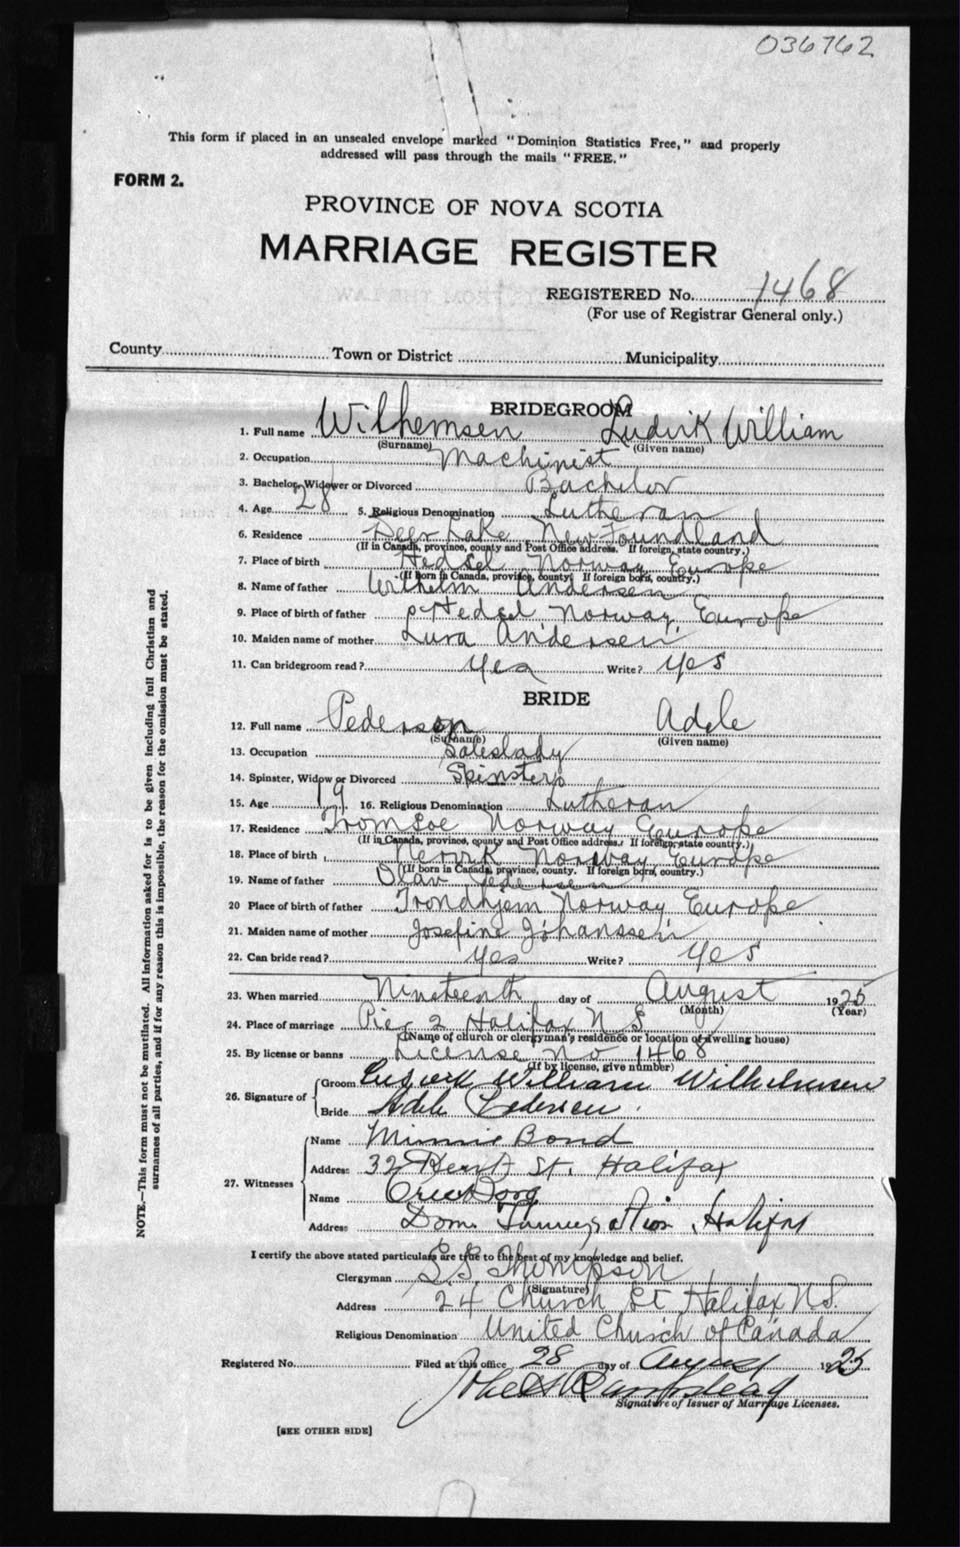 036762
This form if placed in an unsealed envelope marked "Dominion Statistics Free," and properly
addressed will pass through the mails "FREE."
FORM 2.
PROVINCE OF NOVA SCOTIA
MARRIAGE REGISTER
REGISTERED No. 1468
(For use of Registrar General only.)
County Town or District Municipality
BRIDEGROOM
1. Full name Wilhemsen Ludvik William
(Surname) (Given name)
2. Occupation Machinist
3. Bachelor, Widower or Divorced Bachelor
4. Age 28 5. Religious Denomination Lutheran
6. Residence Deer Lake New Foundland
(If in Canada, province, county and Post Office address. If foreign, state country.)
7. Place of birth Hedsel Norway Europe
(If born in Canada, province, county. If foreign born, country.)
8. Name of father Wilhelm Andersen
9. Place of birth of father Hedsel Norway, Europe
10. Maiden name of mother Lura Andersen
11. Can bridegroom read? Yes Write? Yes
BRIDE
12. Full name Pederson Adele
(Surname) (Given name)
13. Occupation Saleslady
14. Spinster, Widow or Divorced Spinster
15. Age 19 16. Religious Denomination Lutheran
17. Residence Tromsoe Norway Europe
(If in Canada, province, county and Post Office address. If foreign, state country.)
18. Place of birth Norway Europe
(If born in Canada, province, county. If foreign born, country.)
19. Name of father Olav Pedersen
20 Place of birth of father Trondhjem Norway Europe
21. Maiden name of mother Josefine Johanssen
22. Can bride read? Yes Write? Yes
23. When married Nineteenth day of August 1925
(Month) (Year)
24. Place of marriage Pier 2 Halifax N S
(Name of church or clergyman's residence or location of dwelling house)
25. By license or banns License no 1468
(If by license, give number)
26. Signature of
Groom Ludvik William Wilhelmsen
Bride Adele Pedersen
27. Witnesses
Name Minnie Bond
Address 32 Kent St. Halifax
Name
Address Dom. Halifax
I certify the above stated particulars are true to the best of my knowledge and belief.
Clergyman Thompson
(Signature)
Address 24 Church St Halifax N.S.
Religious Denomination United Church of Canada
Registered No. Filed at this office 28 day of August 1925
Signature of Issuer of Marriage Licenses.
[SEE OTHER SIDE]
NOTE.—This form must not be mutilated. All information asked for is to be given including full Christian and
surnames of all parties, and if for any reason this is impossible, the reason for the omission must be stated.